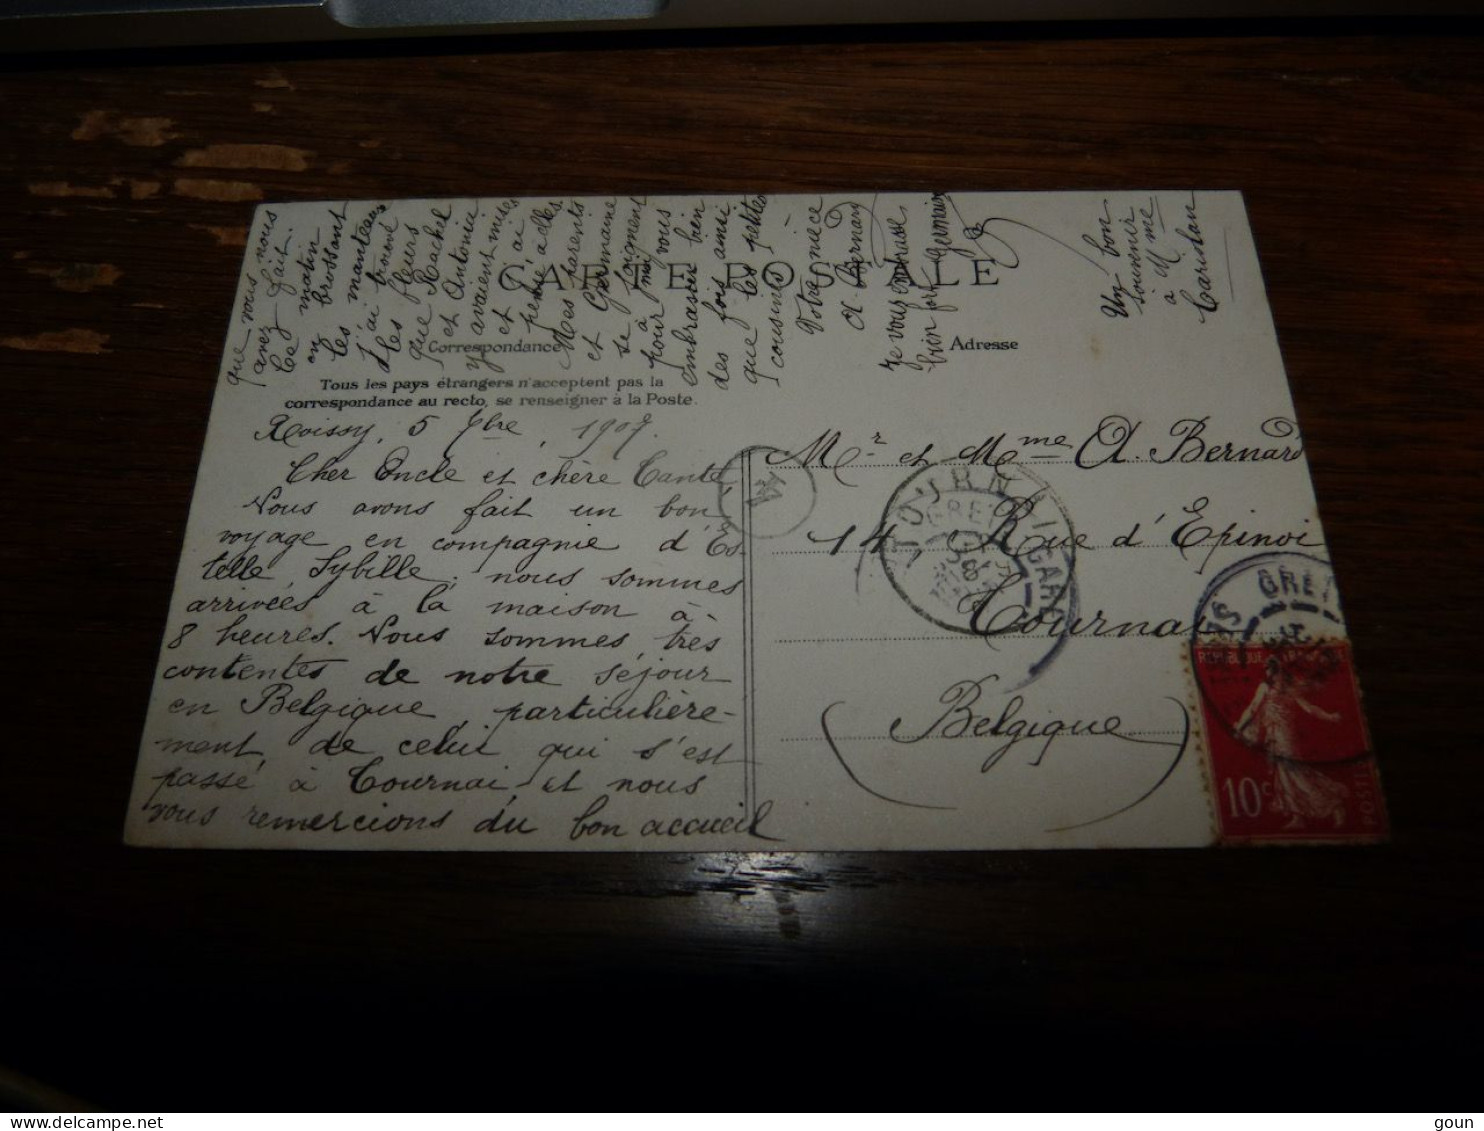 CARTE POSTALE
Correspondance
Adresse
Tous les pays étrangers n'acceptent pas la
correspondance au recto, se renseigner à la Poste.
Roissy, 5 7bre, 1907.
Cher Oncle et chère Tante,
Nous avons fait un bon
voyage en compagnie d'Es-
telle, Sybille; nous sommes
arrivées à la maison à
8 heures. Nous sommes très
contentes de notre séjour
en Belgique, particulière-
ment, de celui qui s'est
passé à Tournai, et nous
vous remercions du bon accueil
que vous nous
avez fait.
Ce matin
en brossant
les manteaux
j'ai trouvé
les fleurs
que Rachel
et Antonia
y avaient mises
et j'ai
pensé à elles
Mes parents
et Germaine
se joignent
à moi
pour vous
embrasser bien
des fois ainsi
que les petites
cousines
Votre nièce
A. Bernard
Je vous embrasse
bien fort Germaine
Un bon
souvenir
à Mme
Carislan
Mr et Mme A. Bernard
14, Rue d'Epinoi
Tournai
(Belgique)
TOURNAI GARE
GRETZ
GRET
REPUBLIQUE FRANÇAISE
10c
POSTES
delcampe.net
goun